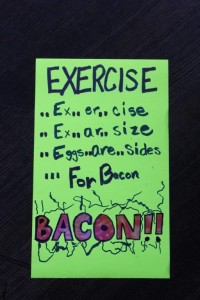 EXERCISE
..Ex..er..cise
..Ex..ar..size
..Eggs..are..sides
... For Bacon
BACON!!